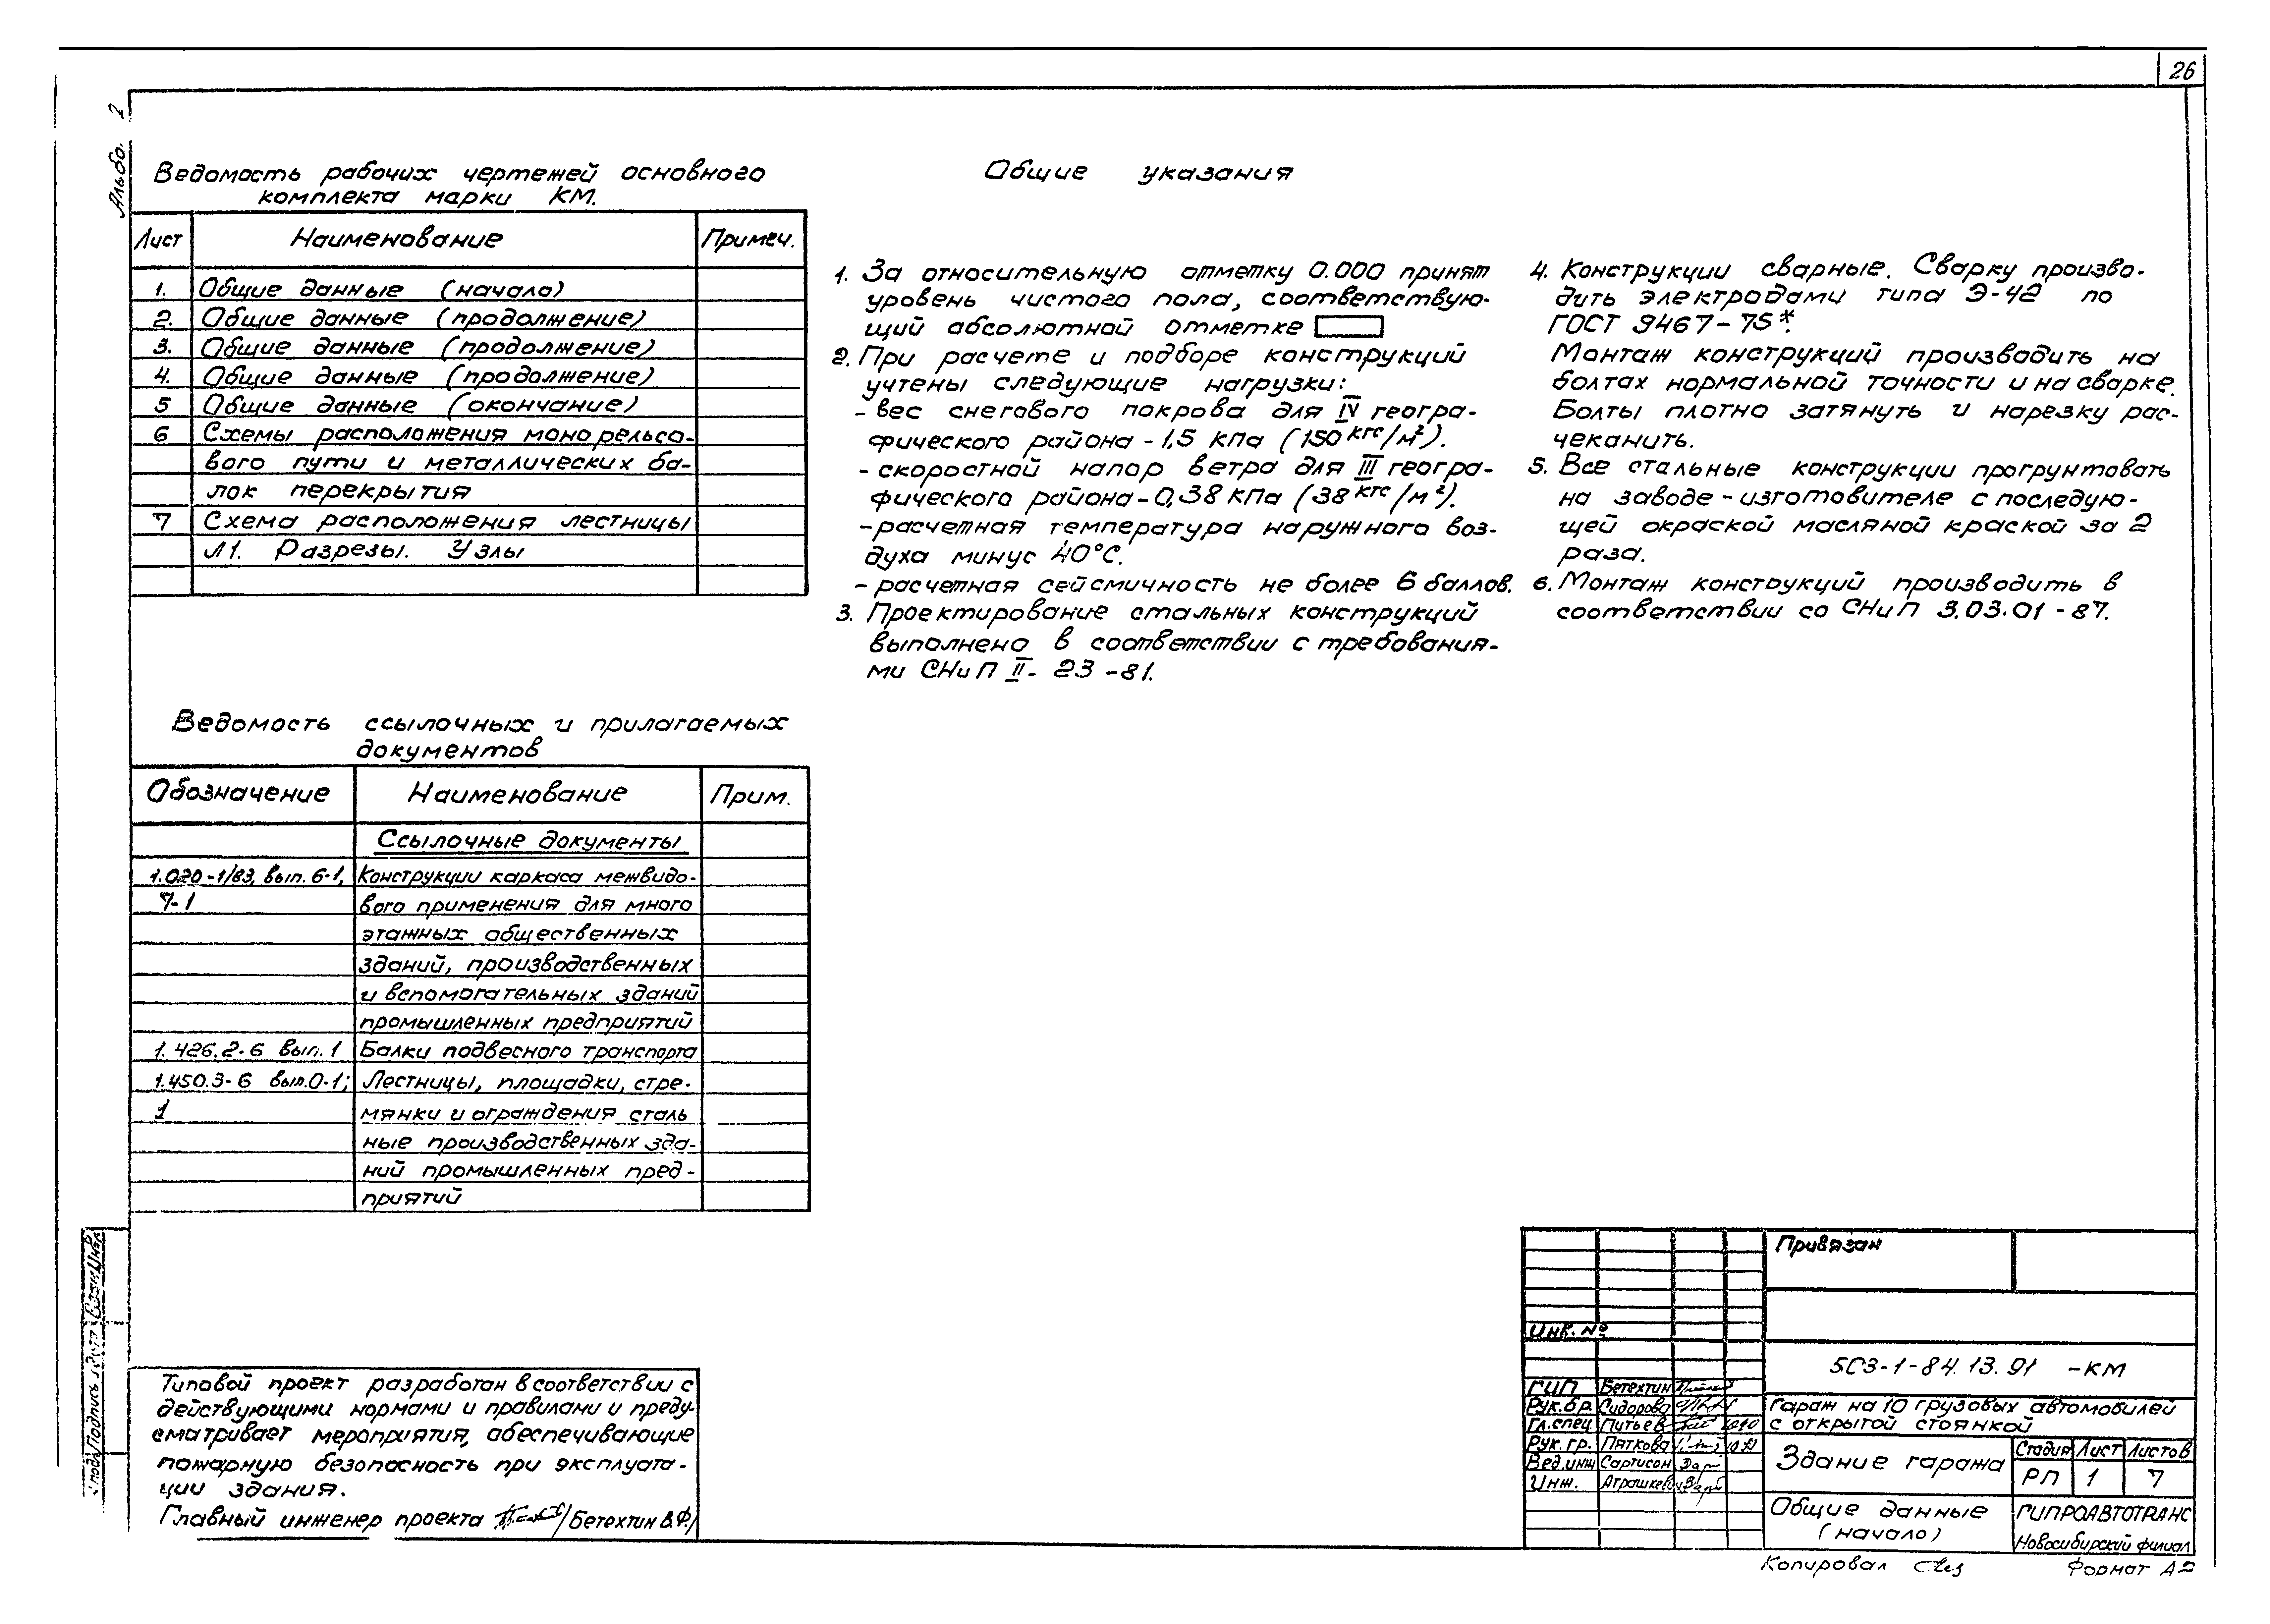 26
Альбо. 2
Ведомость рабочих чертежей основного
комплекта марки КМ.
Лист Наименование Примеч.
1. Общие данные (начало)
2. Общие данные (продолжение)
3. Общие данные (продолжение)
4. Общие данные (продолжение)
5 Общие данные (окончание)
6 Схемы расположения монорельсо-
вого пути и металлических ба-
лок перекрытия
7 Схема расположения лестницы
Л1. Разрезы. Узлы
Ведомость ссылочных и прилагаемых
документов
Обозначение Наименование Прим.
Ссылочные документы
1.020-1/83, вып. 6-1, Конструкции каркаса межвидо-
7-1 вого применения для много
этажных общественных
зданий, производственных
и вспомогательных зданий
промышленных предприятий
1.426.2-6 вып. 1 Балки подвесного транспорта
1.450.3-6 вып.0-1; Лестницы, площадки, стре-
1 мянки и ограждения сталь
ные производственных зда-
ний промышленных пред-
приятий
Типовой проект разработан в соответствии с
действующими нормами и правилами и преду-
сматривает мероприятия, обеспечивающие
пожарную безопасность при эксплуата-
ции здания.
Главный инженер проекта /Бетехтин В.Ф./
Общие указания
1. За относительную отметку 0.000 принят
уровень чистого пола, соответствую-
щий абсолютной отметке
2. При расчете и подборе конструкций
учтены следующие нагрузки:
- вес снегового покрова для IV геогра-
фического района - 1,5 кПа (150 кгс/м²).
- скоростной напор ветра для III геогра-
фического района - 0,38 кПа (38 кгс/м²).
- расчетная температура наружного воз-
духа минус 40°С.
- расчетная сейсмичность не более 6 баллов.
3. Проектирование стальных конструкций
выполнено в соответствии с требования-
ми СНиП II- 23 -81.
4. Конструкции сварные. Сварку произво-
дить электродами типа Э-42 по
ГОСТ 9467-75*.
Монтаж конструкций производить на
болтах нормальной точности и на сварке.
Болты плотно затянуть и нарезку рас-
чеканить.
5. Все стальные конструкции прогрунтовать
на заводе - изготовителе с последую-
щей окраской масляной краской за 2
раза.
6. Монтаж конструкций производить в
соответствии со СНиП 3.03.01 - 87.
Привязан
Инв. №
503-1-84.13.91 -КМ
ГИП Бетехтин
Рук.бр. Сидорова
Гл.спец Питьев
Рук. гр. Пяткова
Вед.инж Сартисон
Инж. Атрашкевич
Гараж на 10 грузовых автомобилей
с открытой стоянкой
Здание гаража
Стадия Лист Листов
РП 1 7
Общие данные
(начало)
ГИПРОАВТОТРАНС
Новосибирский филиал
Копировал
Формат А2
подл Подпись